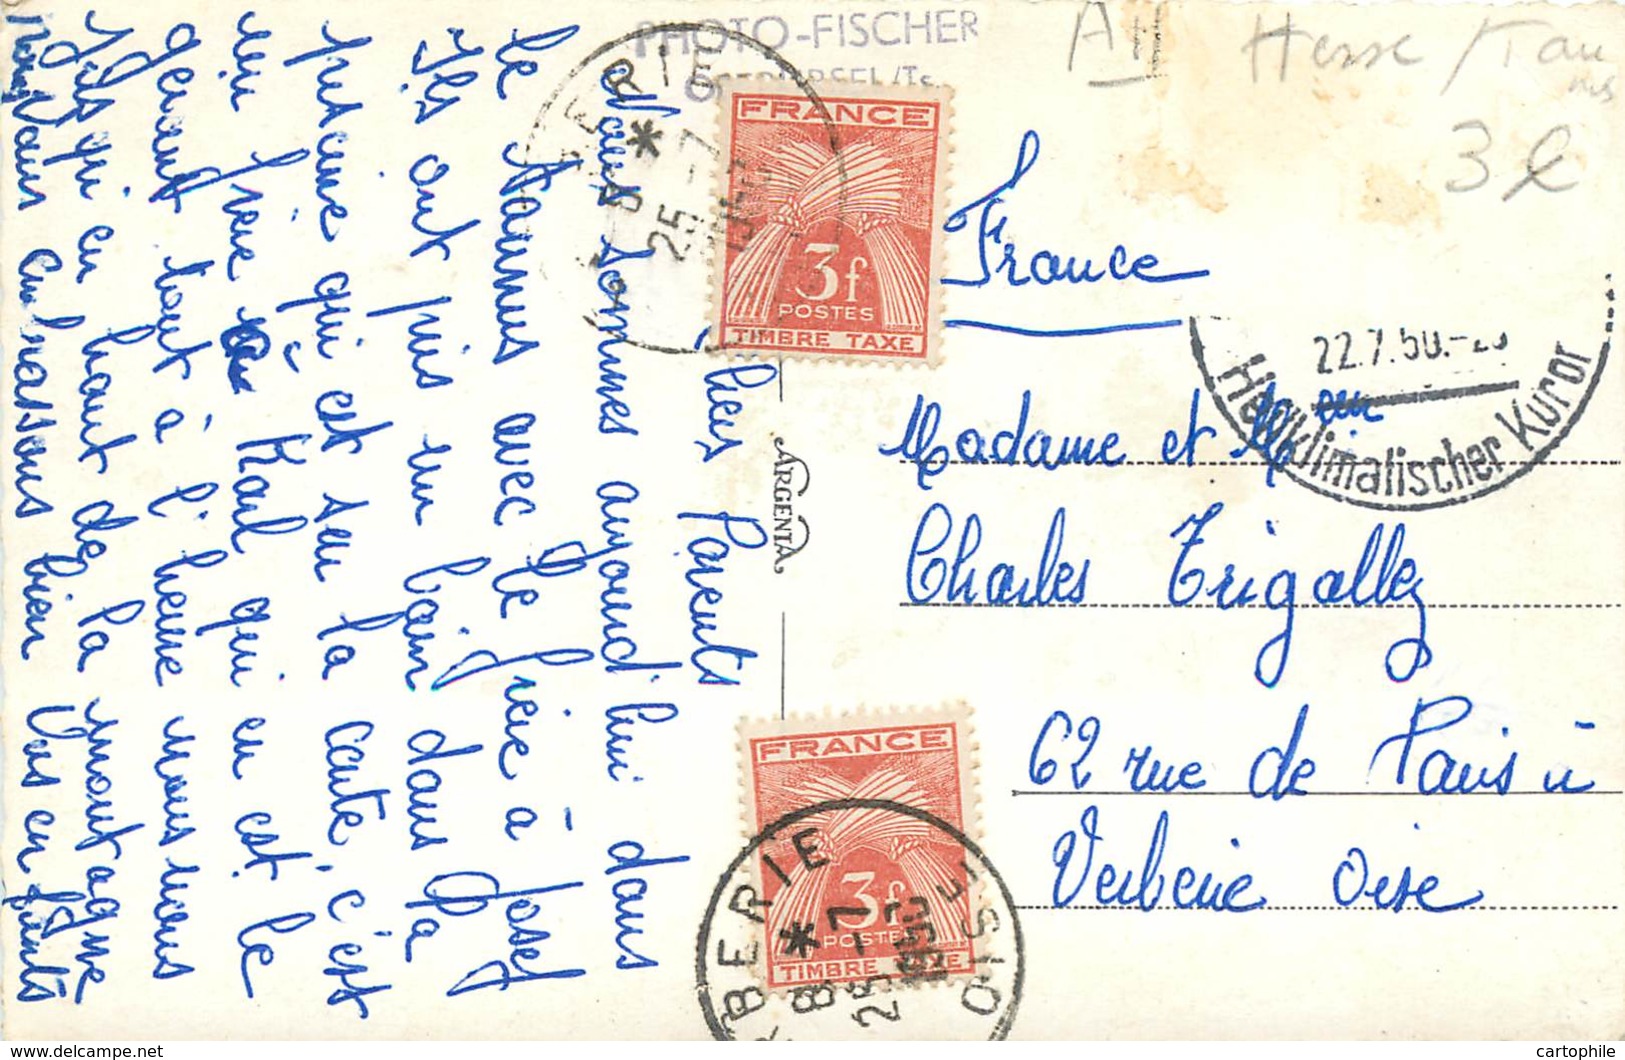 PHOTO-FISCHER
OBERURSEL/Ts.
AH Hesse / Taunus
3 €
FRANCE
3f
POSTES
TIMBRE TAXE
8 *
25 -7
France
22.7.50.-
Heilklimatischer Kurort
Madame et Mr
Charles Trigallez
62 rue de Paris à
Verberie Oise
ARGENTA
FRANCE
3f
POSTES
TIMBRE TAXE
VERBERIE
* 8
25 -7
OISE
Chers Parents
Nous sommes aujourd'hui dans
le Taunus avec le frère à Josef
Ils ont pris un bain dans la
piscine qui est sur la carte, c'est
un frère à Karl qui en est le
gérant tout à l'heure nous irons
jusqu'en haut de la montagne
Nous Vous embrassons bien Vos enfants